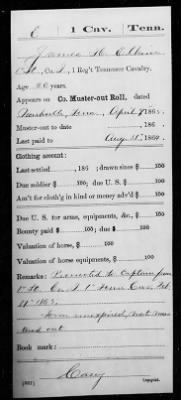 E | 1 Cav. | Tenn.
James H. Elkins
Co. I, 1 Reg't Tennessee Cavalry.
Age 26 years.
Appears on Co. Muster-out Roll, dated
Nashville, Tenn., April 7, 1865.
Muster-out to date , 186 .
Last paid to Aug 31, 1864.
Clothing account:
Last settled , 186 ; drawn since $ 100
Due soldier $ 100; due U. S. $ 100
Am't for cloth'g in kind or money adv'd $ 100
Due U. S. for arms, equipments, &c., $ 100
Bounty paid $ 100; due $ 100
Valuation of horse, $ 100
Valuation of horse equipments, $ 100
Remarks: Promoted to Captain from
1" Lt. Co. I 1" Tenn Cav. Feb.
1863.
Term unexpired, not mus
tered out
Book mark:
Copyist.